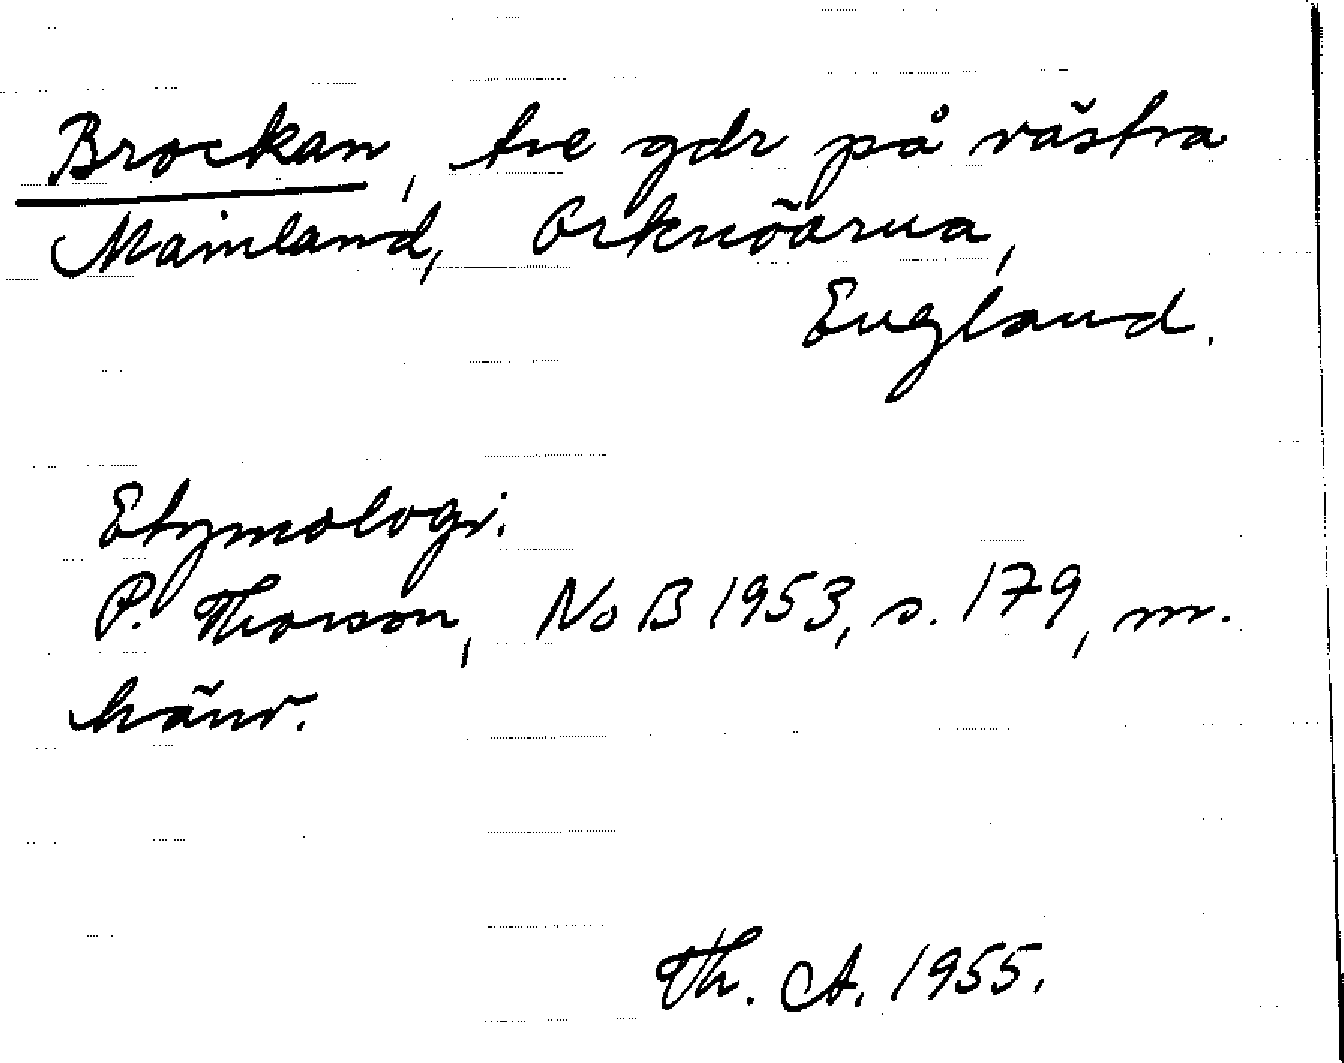 Brockan, tre gdr på västra
Mainland, Orknöarna,
England.
Etymologi.
P. Thorson, NoB 1953, s. 179, m.
hänv.
Th. A. 1955.